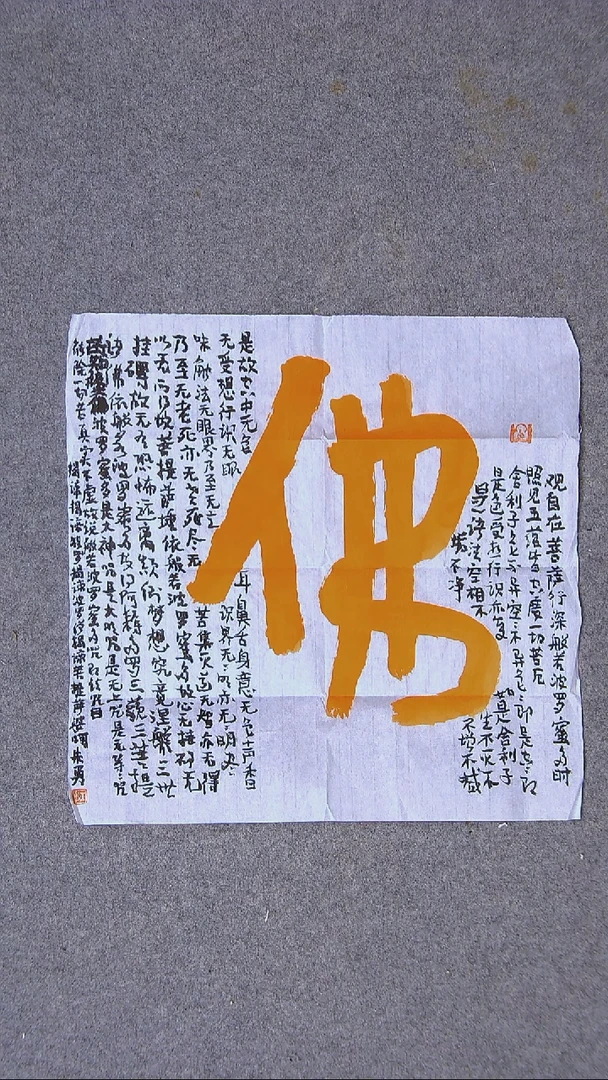 观自在菩萨行深般若波罗蜜多时
照见五蕴皆空度一切苦厄
舍利子色不异空不异色即是空即
是色受想行识亦复如是舍利子
是诸法空相不生不灭不
垢不净不增不减
佛
是故空中无色
无受想行识无眼耳鼻舌身意无色声香
味触法无眼界乃至无意识界无无明亦无无明尽
乃至无老死亦无老死尽无苦集灭道无智亦无得
以无所得故菩提萨埵依般若波罗蜜多故心无挂碍无
挂碍故无有恐怖远离颠倒梦想究竟涅槃三世
诸佛依般若波罗蜜多故得阿耨多罗三藐三菩提
波罗蜜多是大神咒是大明咒是无上咒是无等咒
能除一切苦真实不虚故说般若波罗蜜多咒即说咒曰
揭谛揭谛波罗揭谛波罗僧揭谛菩提萨婆诃